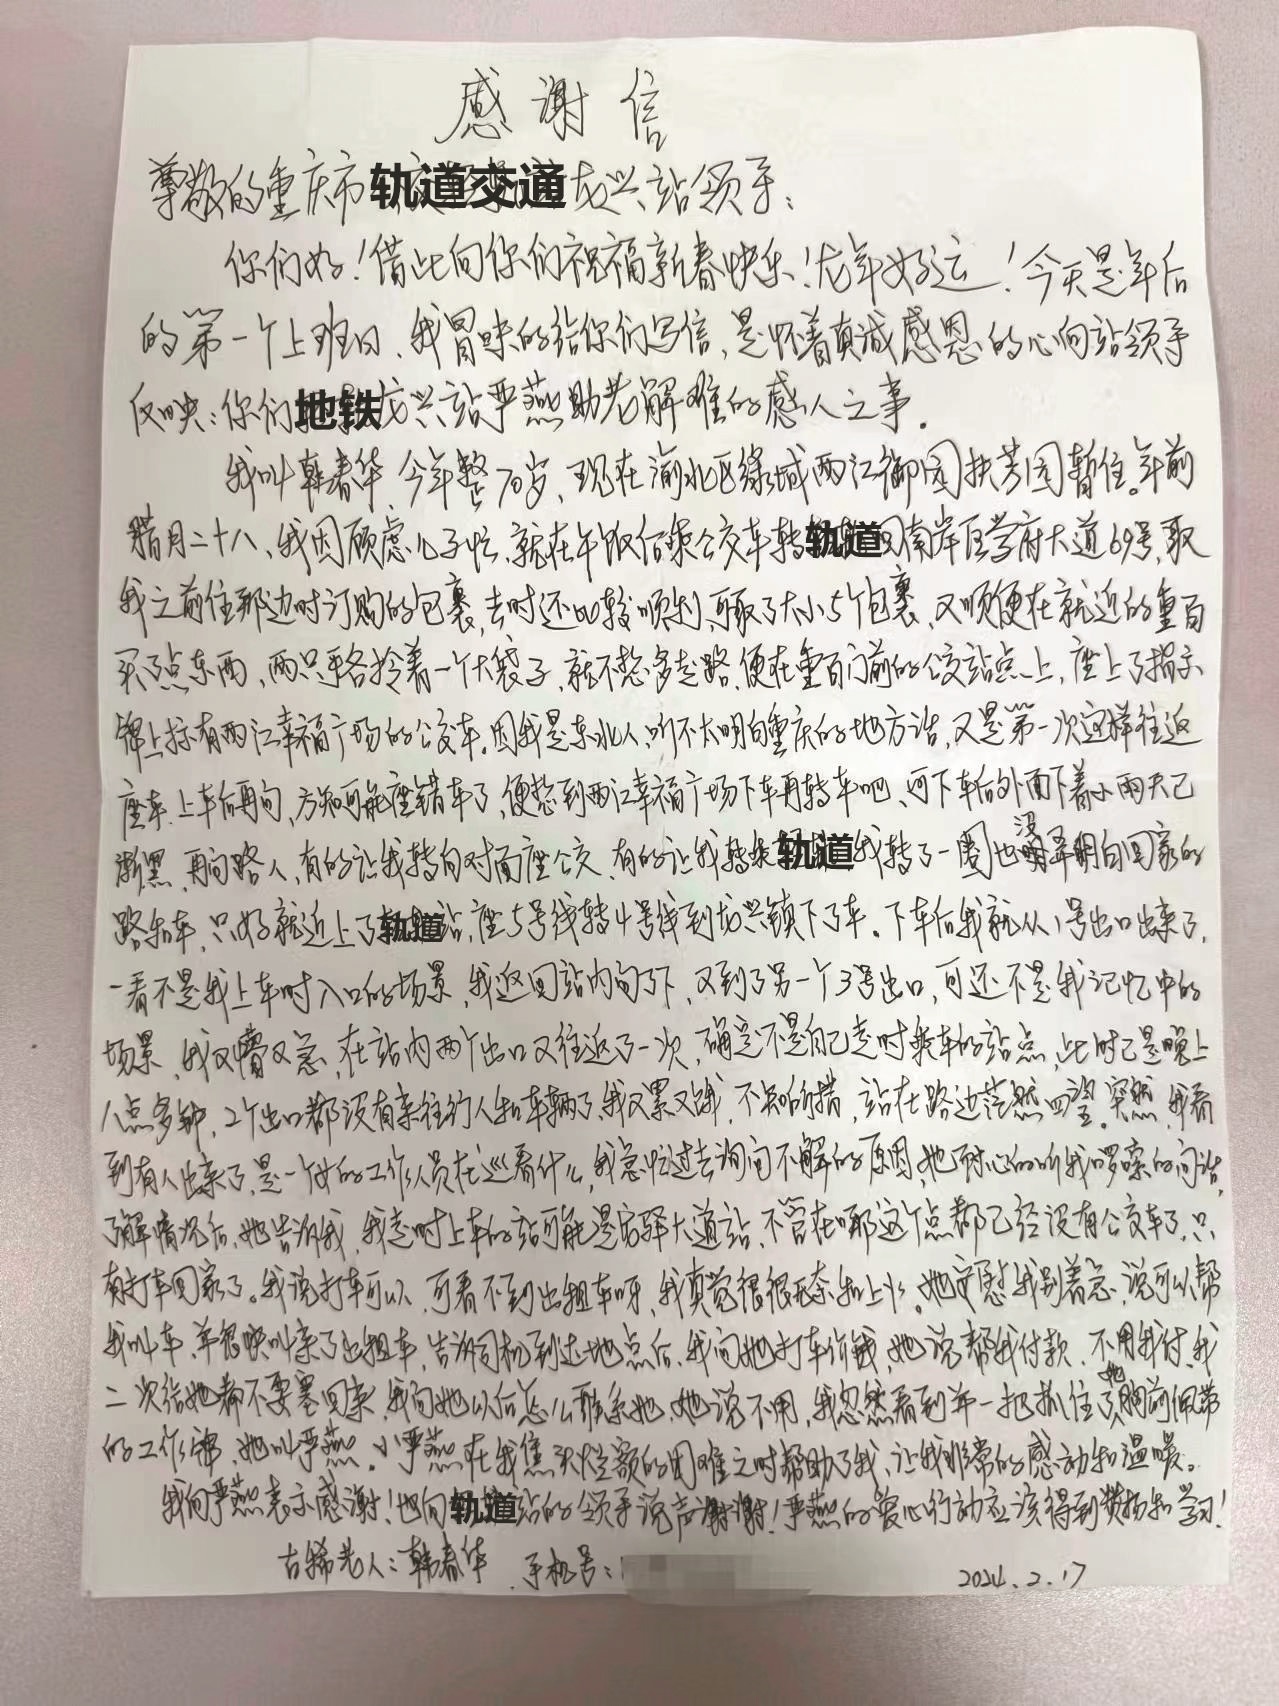 感谢信
尊敬的重庆市轨道交通龙兴站领导：
你们好！借此向你们祝福新春快乐！龙年好运！今天是年后
的第一个上班日、我冒昧的给你们写信，是怀着真诚感恩的心向站领导
反映：你们地铁龙兴站严燕助老解难的感人之事。
我叫韩春华，今年整70岁、现在渝北区绿城两江御园扶芳园暂住。年前
腊月二十八、我因顾虑儿子忙、就在午饭后乘公交车转轨道回南岸区学府大道69号，取
我之前住那边时订购的包裹，去时还比较顺利、可取了大小5个包裹、又顺便在就近的重百
买了点东西、两只手各拎着一个大袋子、就不想多走路、便在重百门前的公交站点上，座上了指示
牌上标有两江幸福广场的公交车。因我是东北人，听不太明白重庆的地方话，又是第一次这样往返
座车、上车后再问、方知可能座错车了、便想到两江幸福广场下车再转车吧、可下车后外面下着小雨天已
渐黑、再问路人、有的让我转向对面座公交、有的让我转乘轨道我转了一圈也没弄明白回家的
路和车，只好就近上了轨道站，座5号线转4号线到龙兴镇下了车。下车后我就从1号出口出来了，
一看不是我上车时入口的场景，我返回站内问了下、又到了另一个3号出口，可还不是我记忆中的
场景、我又懵又急、在站内两个出口又往返了一次，确定不是自己走时乘车的站点，此时已是晚上
八点多钟，2个出口都没有来往行人和车辆了、我又累又饿，不知所措，站在路边茫然四望。突然，我看
到有人出来了，是一个女的工作人员在巡看什么，我急忙过去询问不解的原因，她耐心的听我啰嗦的问话，
了解情况后、她告诉我、我走时上车的站可能是店驿大道站、不管在哪这个点都已经没有公交车了、只
有打车回家了。我说打车可以、可看不到出租车呀、我真觉很很无奈和上火。她安慰我别着急、说可以帮
我叫车、并很快叫来了出租车，告诉司机到达地点后、我问她打车价钱，她说帮我付款、不用我付、我
二次给她都不要塞回来、我问她以后怎么联系她、她说不用，我忽然看到并一把抓住了她胸前佩带
的工作牌、她叫严燕。小严燕在我焦头烂额的困难之时帮助了我、让我非常的感动和温暖。
我向严燕表示感谢！也向轨道站的领导说声谢谢！严燕的爱心行动应该得到赞扬和学习！
古稀老人：韩春华 手机号：
2024.2.17